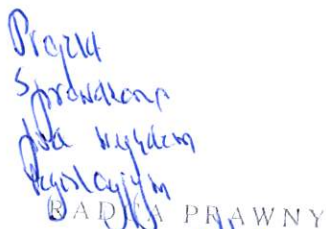 Projekt
Sprawdzono
pod względem
legislacyjnym
RADCA PRAWNY